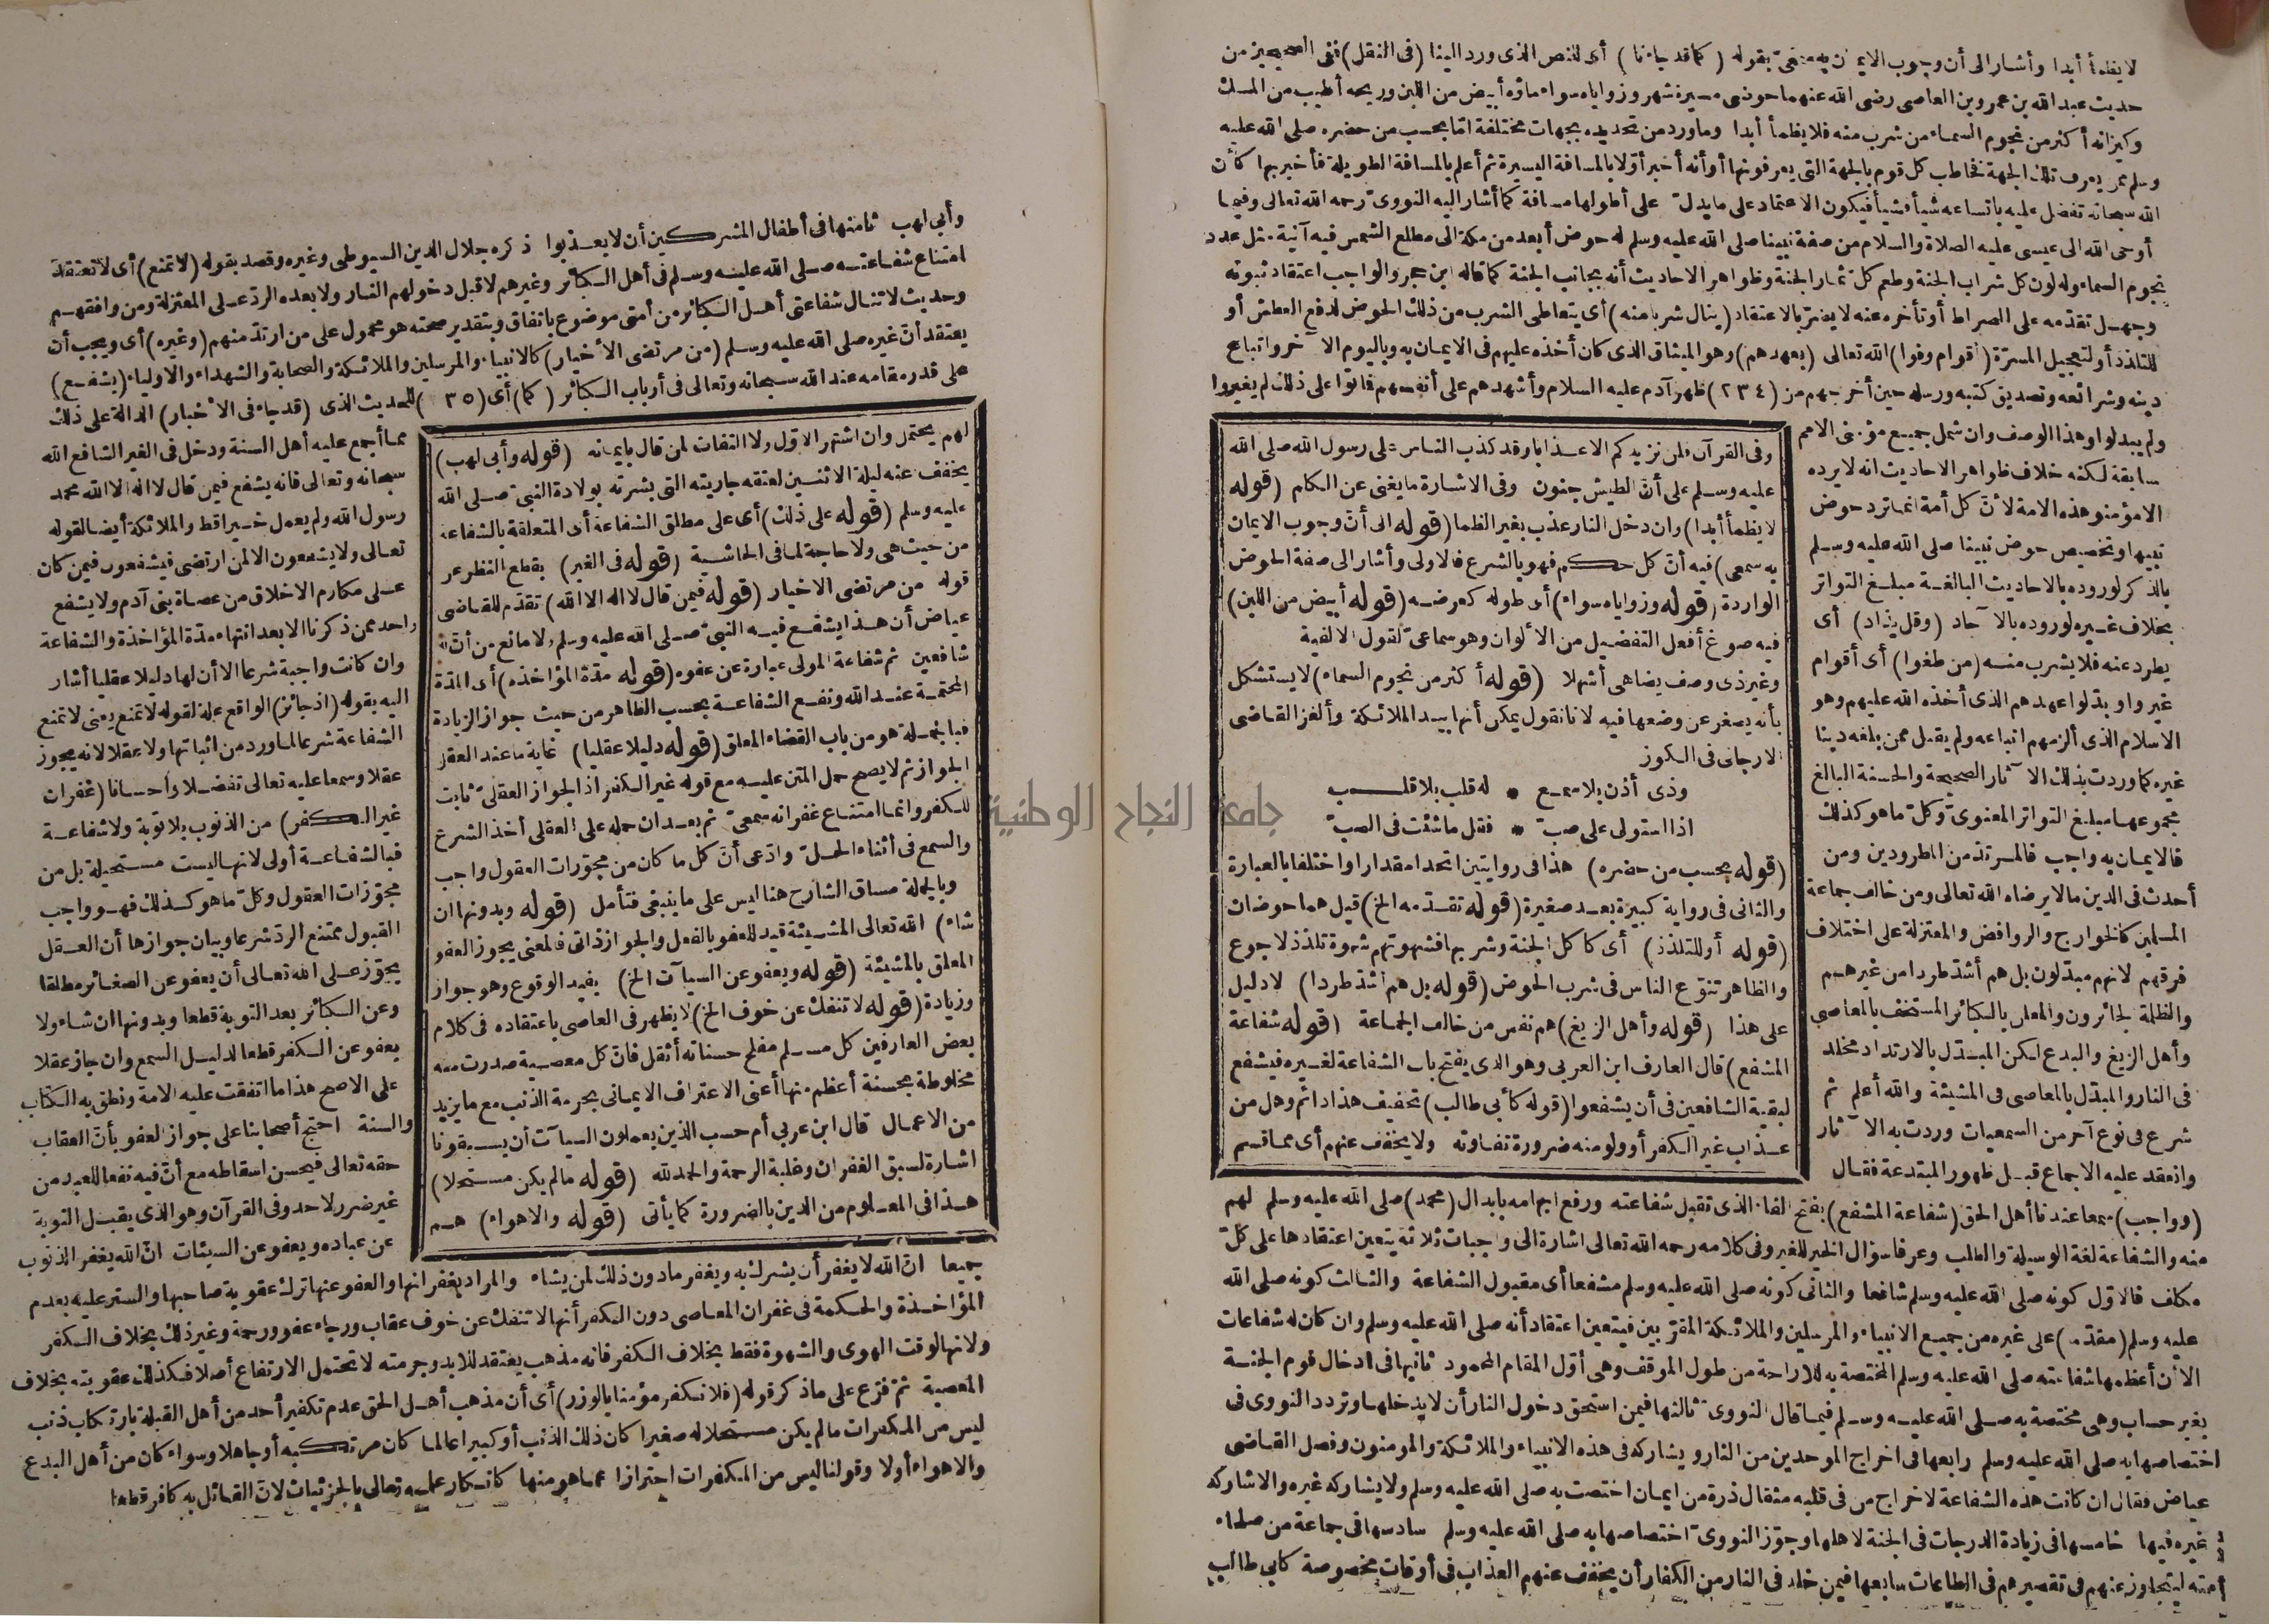 لا يظمأ أبدا وأشار الى أن وجوب الايمان به سمعى بقوله (كما قد جاءنا) أى للنص الذى ورد الينا (فى النقل) ففى الصحيحين من
حديث عبد الله بن عمرو بن العاصى رضى الله عنهما حوضى مسيرة شهر وزواياه سواء ماؤه أبيض من اللبن وريحه أطيب من المسك
وكيزانه أكثر من نجوم السماء من شرب منه فلا يظمأ أبدا وما ورد من تحديده بجهات مختلفة اما بحسب من حضره صلى الله عليه
وسلم ممن يعرف تلك الجهة فخاطب كل قوم بالجهة التى يعرفونها أو أنه أخبر أولا بالمسافة اليسيرة ثم أعلم بالمسافة الطويلة فأخبر بها كأن
الله سبحانه تفضل عليه باتساعه شيأ فشيأ فيكون الاعتماد على ما يدل على أطولها مسافة كما أشار اليه النووى رحمه الله تعالى وفيما
أوحى الله الى عيسى عليه الصلاة والسلام من صفة نبينا صلى الله عليه وسلم له حوض أبعد من مكة الى مطلع الشمس فيه آنية مثل عدد
نجوم السماء وله لون كل شراب الجنة وطعم كل ثمار الجنة وظواهر الاحاديث أنه بجانب الجنة كما قاله ابن حجر والواجب اعتقاد ثبوته
وجهل تقدمه على الصراط أو تأخره عنه لا يضر بالاعتقاد (ينال شربا منه) أى يتعاطى الشرب من ذلك الحوض لدفع العطش أو
للتلذذ أو لتعجيل المسرة (أقوام وفوا) الله تعالى (بعهدهم) وهو الميثاق الذى كان أخذه عليهم فى الايمان به وباليوم الآخر واتباع
دينه وشرائعه وتصديق كتبه ورسله حين أخرجهم من (٢٣٤) ظهر آدم عليه السلام وأشهدهم على أنفسهم فماتوا على ذلك لم يغيروا
ولم يبدلوا وهذا الوصف وان شمل جميع مؤمنى الامم
سابقة لكنه خلاف ظواهر الاحاديث انه لا يرده
الا مؤمنو هذه الامة لأن كل أمة انما ترد حوض
نبيها وتخصيص حوض نبينا صلى الله عليه وسلم
بالذكر لوروده بالاحاديث البالغة مبلغ التواتر
بخلاف غيره لوروده بالآحاد (وقل يذاد) أى
يطرد عنه فلا يشرب منه (من طغوا) أى أقوام
غيروا وبدلوا عهدهم الذى أخذه الله عليهم وهو
الاسلام الذى ألزمهم اتباعه ولم يقبل ممن بلغه دينا
غيره كما وردت بذلك الآثار الصحيحة والحسنة البالغ
مجموعها مبلغ التواتر المعنوى وكل ما هو كذلك
فالايمان به واجب فالمرتد من المطرودين ومن
أحدث فى الدين ما لا يرضاه الله تعالى ومن خالف جماعة
المسلمين كالخوارج والروافض والمعتزلة على اختلاف
فرقهم لانهم مبدلون بل هم أشد طردا من غيرهم
والظلمة الجائرون والمعلن بالكبائر المستخف بالمعاصى
وأهل الزيغ والبدع لكن المبدل بالارتداد مخلد
فى النار والمبدل بالمعاصى فى المشيئة والله أعلم ثم
شرع فى نوع آخر من السمعيات وردت به الآثار
وانعقد عليه الاجماع قبل ظهور المبتدعة فقال
وفى القرآن فلن نزيدكم الا عذابا وقد كذب الناس على رسول الله صلى الله
عليه وسلم على أن الطيش جنون وفى الاشارة ما يغنى عن الكلام (قوله
لا يظمأ أبدا) وان دخل النار عذب بغير الظما (قوله الى أن وجوب الايمان
به سمعى) فيه أن كل حكم فهو بالشرع فالاولى وأشار الى صفة الحوض
الواردة (قوله وزواياه سواء) أى طوله كعرضه (قوله أبيض من اللبن)
فيه صوغ أفعل التفضيل من الألوان وهو سماعى لقول الالفية
وغير ذى وصف يضاهى أشهلا (قوله أكثر من نجوم السماء) لا يستشكل
بأنه يصغر عن وضعها فيه لانا نقول يمكن أنها بيد الملائكة وألغز القاضى
الارجانى فى الكوز
وذى أذن بلا سمع * له قلب بلا قلب
اذا استولى على صب * فقل ما شئت فى الصب
(قوله بحسب من حضره) هذا فى روايتين اتحدا مقدارا واختلفا بالعبارة
والثانى فى رواية كبيرة بعد صغيرة (قوله تقدمه الخ) قيل هما حوضان
(قوله أو للتلذذ) أى كأكل الجنة وشربها فشهوتهم شهوة تلذذ لا جوع
والظاهر تنوع الناس فى شرب الحوض (قوله بل هم أشد طردا) لا دليل
على هذا (قوله وأهل الزيغ) هم نفس من خالف الجماعة (قوله شفاعة
المشفع) قال العارف ابن العربى وهو الذى يفتح باب الشفاعة لغيره فيشفع
لبقية الشافعين فى أن يشفعوا (قوله كأبى طالب) تخفيف هذا دائم وهل من
عذاب غير الكفر أو ولو منه ضرورة تفاوته ولا يخفف عنهم أى مما قسم
(وواجب) سمعا عندنا أهل الحق (شفاعة المشفع) بفتح الفاء الذى تقبل شفاعته ورفع ابهامه بابدال (محمد) صلى الله عليه وسلم لهم
منه والشفاعة لغة الوسيلة والطلب وعرفا سؤال الخير للغير وفى كلامه رحمه الله تعالى اشارة الى واجبات ثلاثة يتعين اعتقادها على كل
مكلف فالاول كونه صلى الله عليه وسلم شافعا والثانى كونه صلى الله عليه وسلم مشفعا أى مقبول الشفاعة والثالث كونه صلى الله
عليه وسلم (مقدما) على غيره من جميع الانبياء والمرسلين والملائكة المقربين فيتعين اعتقاد أنه صلى الله عليه وسلم وان كان له شفاعات
الا أن أعظمها شفاعته صلى الله عليه وسلم المختصة به للاراحة من طول الموقف وهى أول المقام المحمود ثانيها فى ادخال قوم الجنة
بغير حساب وهى مختصة به صلى الله عليه وسلم فيما قال النووى ثالثها فيمن استحق دخول النار أن لا يدخلها وتردد النووى فى
اختصاصها به صلى الله عليه وسلم رابعها فى اخراج الموحدين من النار ويشاركه فى هذه الانبياء والملائكة والمؤمنون وفصل القاضى
عياض فقال ان كانت هذه الشفاعة لاخراج من فى قلبه مثقال ذرة من ايمان اختصت به صلى الله عليه وسلم ولا يشاركه غيره والا شاركه
غيره فيها خامسها فى زيادة الدرجات فى الجنة لاهلها وجوز النووى اختصاصها به صلى الله عليه وسلم سادسها فى جماعة من صلحاء
أمته ليتجاوز عنهم فى تقصيرهم فى الطاعات سابعها فيمن خلد فى النار من الكفار أن يخفف عنهم العذاب فى أوقات مخصوصة كأبى طالب
جامعة النجاح الوطنية
وأبى لهب ثامنها فى أطفال المشركين أن لا يعذبوا ذكره جلال الدين السيوطى وغيره وقصد بقوله (لا تمنع) أى لا تعتقد
امتناع شفاعته صلى الله عليه وسلم فى أهل الكبائر وغيرهم لا قبل دخولهم النار ولا بعده الرد على المعتزلة ومن وافقهم
وحديث لا تنال شفاعتى أهل الكبائر من أمتى موضوع باتفاق وبتقدير صحته هو محمول على من ارتد منهم (وغيره) أى ويجب أن
يعتقد أن غيره صلى الله عليه وسلم (من مرتضى الأخيار) كالانبياء والمرسلين والملائكة والصحابة والشهداء والاولياء (يشفع)
على قدر مقامه عند الله سبحانه وتعالى فى أرباب الكبائر (كما) أى (٣٥) للحديث الذى (قد جاء فى الاخبار) الدالة على ذلك
لهم يحتمل وان اشتهر الاول ولا التفات لمن قال بايمانه (قوله وأبى لهب)
يخفف عنه ليلة الاثنين لعتقه جاريته التى بشرته بولادة النبى صلى الله
عليه وسلم (قوله على ذلك) أى على مطلق الشفاعة أى المتعلقة بالشفاعة
من حيث هى ولا حاجة لما فى الحاشية (قوله فى الغير) بقطع النظر عن
قوله من مرتضى الاخيار (قوله فيمن قال لا اله الا الله) تقدم للقاضى
عياض أن هذا يشفع فيه النبى صلى الله عليه وسلم ولا مانع من أن
شافعين ثم شفاعة المولى عبارة عن عفوه (قوله مدة المؤاخذه) أى المدة
المحتمة عند الله ونفع الشفاعة بحسب الظاهر من حيث جواز الزيادة
فبالجملة هو من باب القضاء المعلق (قوله دليلا عقليا) غاية ما عند العقل
الجواز ثم لا يصح حمل المتن عليه مع قوله غير الكفر اذ الجواز العقلى ثابت
للكفر وانما امتناع غفرانه سمعى ثم بعد ان حمله على العقلى أخذ الشرع
والسمع فى أثناء الحل وادعى أن كل ما كان من مجوزات العقول واجب
وبالجملة مساق الشارح هنا ليس على ما ينبغى فتأمل (قوله وبدونها ان
شاء) الله تعالى المشيئة قيد للعفو بالفعل والجواز ذاتى فالمعنى يجوز العفو
المعلق بالمشيئة (قوله ويعفو عن السيآت الخ) يفيد الوقوع وهو جواز
وزيادة (قوله لا تنفك عن خوف الخ) لا يظهر فى العاصى باعتقاده فى كلام
بعض العارفين كل مسلم مفلح حسناته أثقل فان كل معصية صدرت منه
مخلوطة بحسنة أعظم منها أعنى الاعتراف الايمانى بحرمة الذنب مع ما يزيد
من الاعمال قال ابن عربى أم حسب الذين يعملون السيآت أن يسبقونا
اشارة لسبق الغفران وغلبة الرحمة والحمد لله (قوله ما لم يكن مستحلا)
هذا فى المعلوم من الدين بالضرورة كما يأتى (قوله والاهواء) هم
مما أجمع عليه أهل السنة ودخل فى الغير الشافع الله
سبحانه وتعالى فانه يشفع فيمن قال لا اله الا الله محمد
رسول الله ولم يعمل خيرا قط والملائكة أيضا لقوله
تعالى ولا يشفعون الا لمن ارتضى فيشفعون فيمن كان
على مكارم الاخلاق من عصاة بنى آدم ولا يشفع
واحد ممن ذكرنا الا بعد انتهاء مدة المؤاخذة والشفاعة
وان كانت واجبة شرعا الا أن لها دليلا عقليا أشار
اليه بقوله (اذ جائز) الواقع علة لقوله لا تمنع يعنى لا تمنع
الشفاعة شرعا لما ورد من اثباتها ولا عقلا لانه يجوز
عقلا وسمعا عليه تعالى تفضلا واحسانا (غفران
غير الكفر) من الذنوب بلا توبة ولا شفاعة
فبالشفاعة أولى لانها ليست مستحيلة بل من
مجوزات العقول وكل ما هو كذلك فهو واجب
القبول ممتنع الرد شرعا وبيان جوازها أن العقل
يجوز على الله تعالى أن يعفو عن الصغائر مطلقا
وعن الكبائر بعد التوبة قطعا وبدونها ان شاء ولا
يعفو عن الكفر قطعا لدليل السمع وان جاز عقلا
على الاصح هذا ما اتفقت عليه الامة ونطق به الكتاب
والسنة احتج أصحابنا على جواز العفو بأن العقاب
حقه تعالى فيحسن اسقاطه مع أن فيه نفعا للعبد من
غير ضرر لاحد وفى القرآن وهو الذى يقبل التوبة
عن عباده ويعفو عن السيئات ان الله يغفر الذنوب
جميعا ان الله لا يغفر أن يشرك به ويغفر ما دون ذلك لمن يشاء والمراد بغفرانها والعفو عنها ترك عقوبة صاحبها والستر عليه بعدم
المؤاخذة والحكمة فى غفران المعاصى دون الكفر أنها لا تنفك عن خوف عقاب ورجاء عفو ورحمة وغير ذلك بخلاف الكفر
ولانها لوقت الهوى والشهوة فقط بخلاف الكفر فانه مذهب يعتقد للابد وحرمته لا تحتمل الارتفاع أصلا فكذلك عقوبته بخلاف
المعصية ثم فرع على ما ذكر قوله (فلا نكفر مؤمنا بالوزر) أى أن مذهب أهل الحق عدم تكفير أحد من أهل القبلة بارتكاب ذنب
ليس من المكفرات ما لم يكن مستحلا له صغيرا كان ذلك الذنب أو كبيرا عالما كان مرتكبه أو جاهلا وسواء كان من أهل البدع
والاهواء أولا وقولنا ليس من المكفرات احترازا عما هو منها كانكار علمه تعالى بالجزئيات لان القائل به كافر قطعا